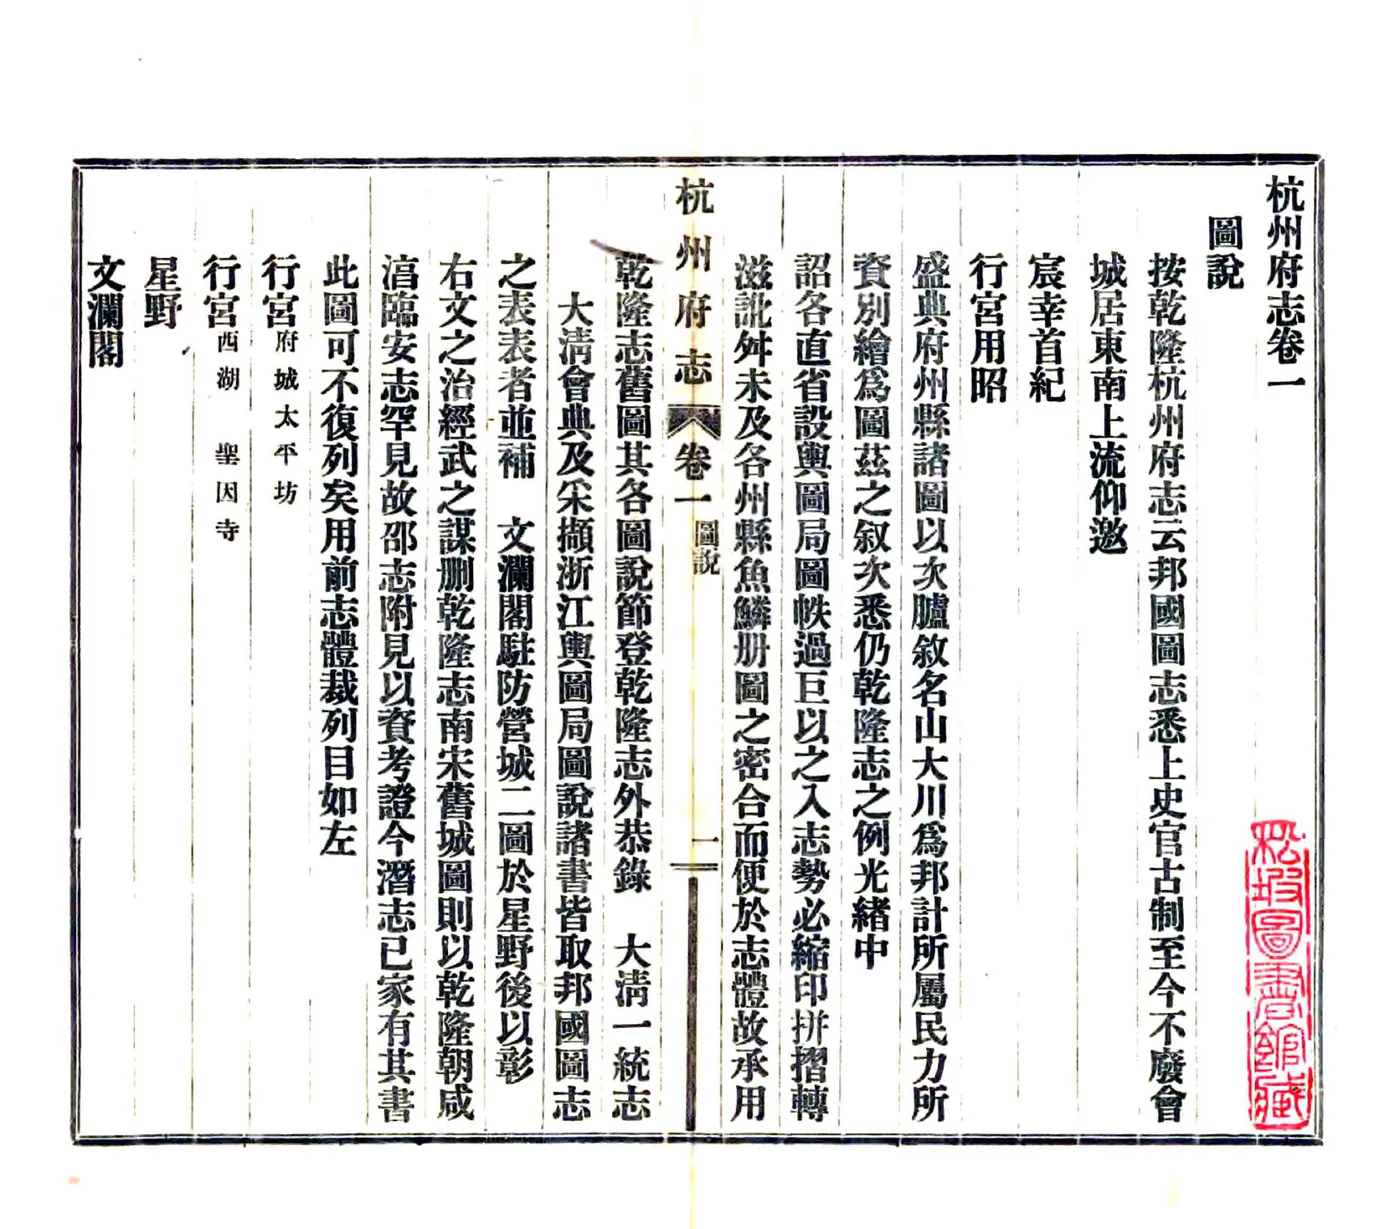 杭州府志卷一
圖說
按乾隆杭州府志云邦國圖志悉上史官古制至今不廢會
城居東南上流仰邀
宸幸首紀
行宮用昭
盛典府州縣諸圖以次臚敘名山大川爲邦計所屬民力所
資別繪爲圖茲之叙次悉仍乾隆志之例光緒中
詔各直省設輿圖局圖帙過巨以之入志勢必縮印拼摺轉
滋訛舛未及各州縣魚鱗册圖之密合而便於志體故承用
杭州府志
卷一
圖說
一
乾隆志舊圖其各圖說節登乾隆志外恭錄 大淸一統志
大淸會典及采擷浙江輿圖局圖說諸書皆取邦國圖志
之表表者並補 文瀾閣駐防營城二圖於星野後以彰
右文之治經武之謀删乾隆志南宋舊城圖則以乾隆朝咸
湻臨安志罕見故邵志附見以資考證今潛志已家有其書
此圖可不復列矣用前志體裁列目如左
行宮府城太平坊
行宮西湖 聖因寺
星野
文瀾閣
松坡圖書館藏